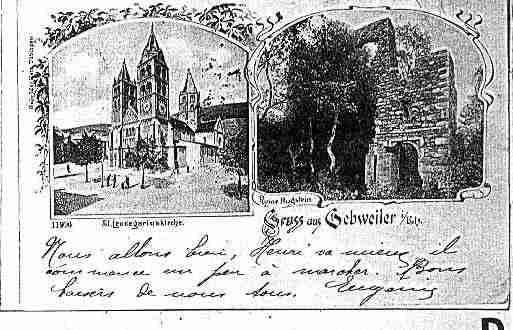 Ruine Hugstein
11906 St. Leodegariuskirche.
Gruss aus Gebweiler i/Els.
Nous allons bien, Henri va mieux il
commence un peu à marcher. Bons
baisers de nous tous. Eugénie